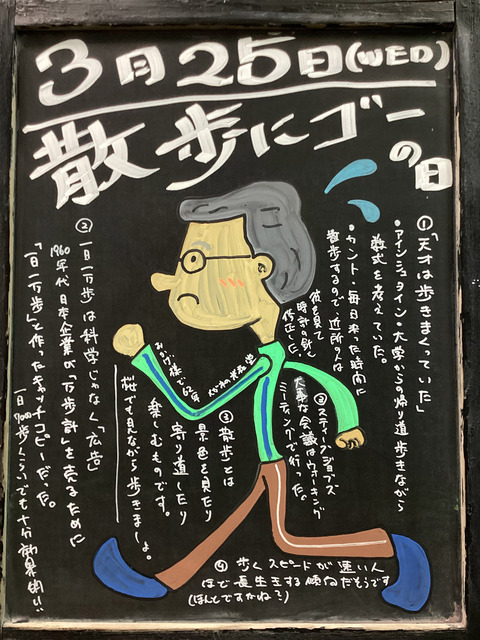 3月25日(WED)
散歩にゴーの日
①「天才は歩きまくっていた」
・アインシュタイン・大学からの帰り道歩きながら
数式を考えていた。
・カント・毎日決った時間に
散歩するので、近所の人は
彼を見て
時計の針を
修正した。
・スティーブ・ジョブズ
大事な会議はウォーキング
ミーティングで行った。
②一日一万歩は科学じゃなく「広告」
1960年代日本企業が「万歩計」を売るために
「一日一万歩」と作ったキャッチコピーだった。
一日7000歩くらいでも十分効果的!!
③散歩とは
景色を見たり
寄り道したり
楽しむものです。
桜でも見ながら歩きましょ。
みかげ様で62年
④歩くスピードが速い人
ほど長生きする傾向だそうです
(ほんとですかね?)